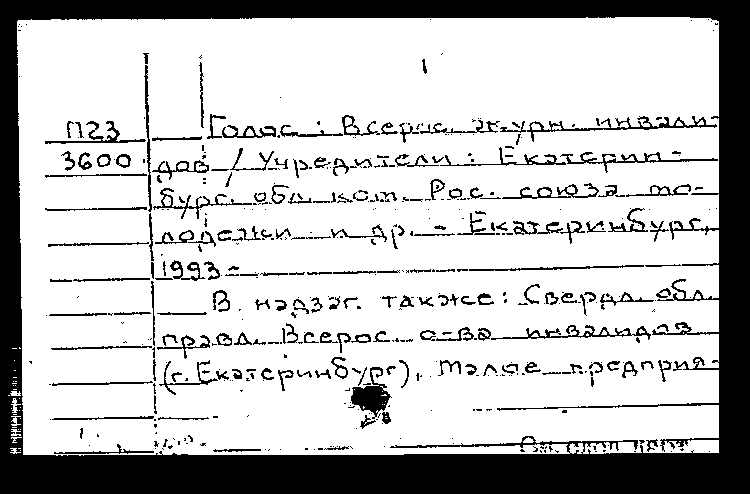 1
П23 Голос : Всерос. журн. инвали-
3600 дов / Учредители : Екатерин-
бург. обл. ком. Рос. союза мо-
лодежи и др. - Екатеринбург,
1993-
В надзаг. также: Свердл. обл.
правл. Всерос. о-ва инвалидов
(г. Екатеринбург), малое предприя-
См. след. карт.